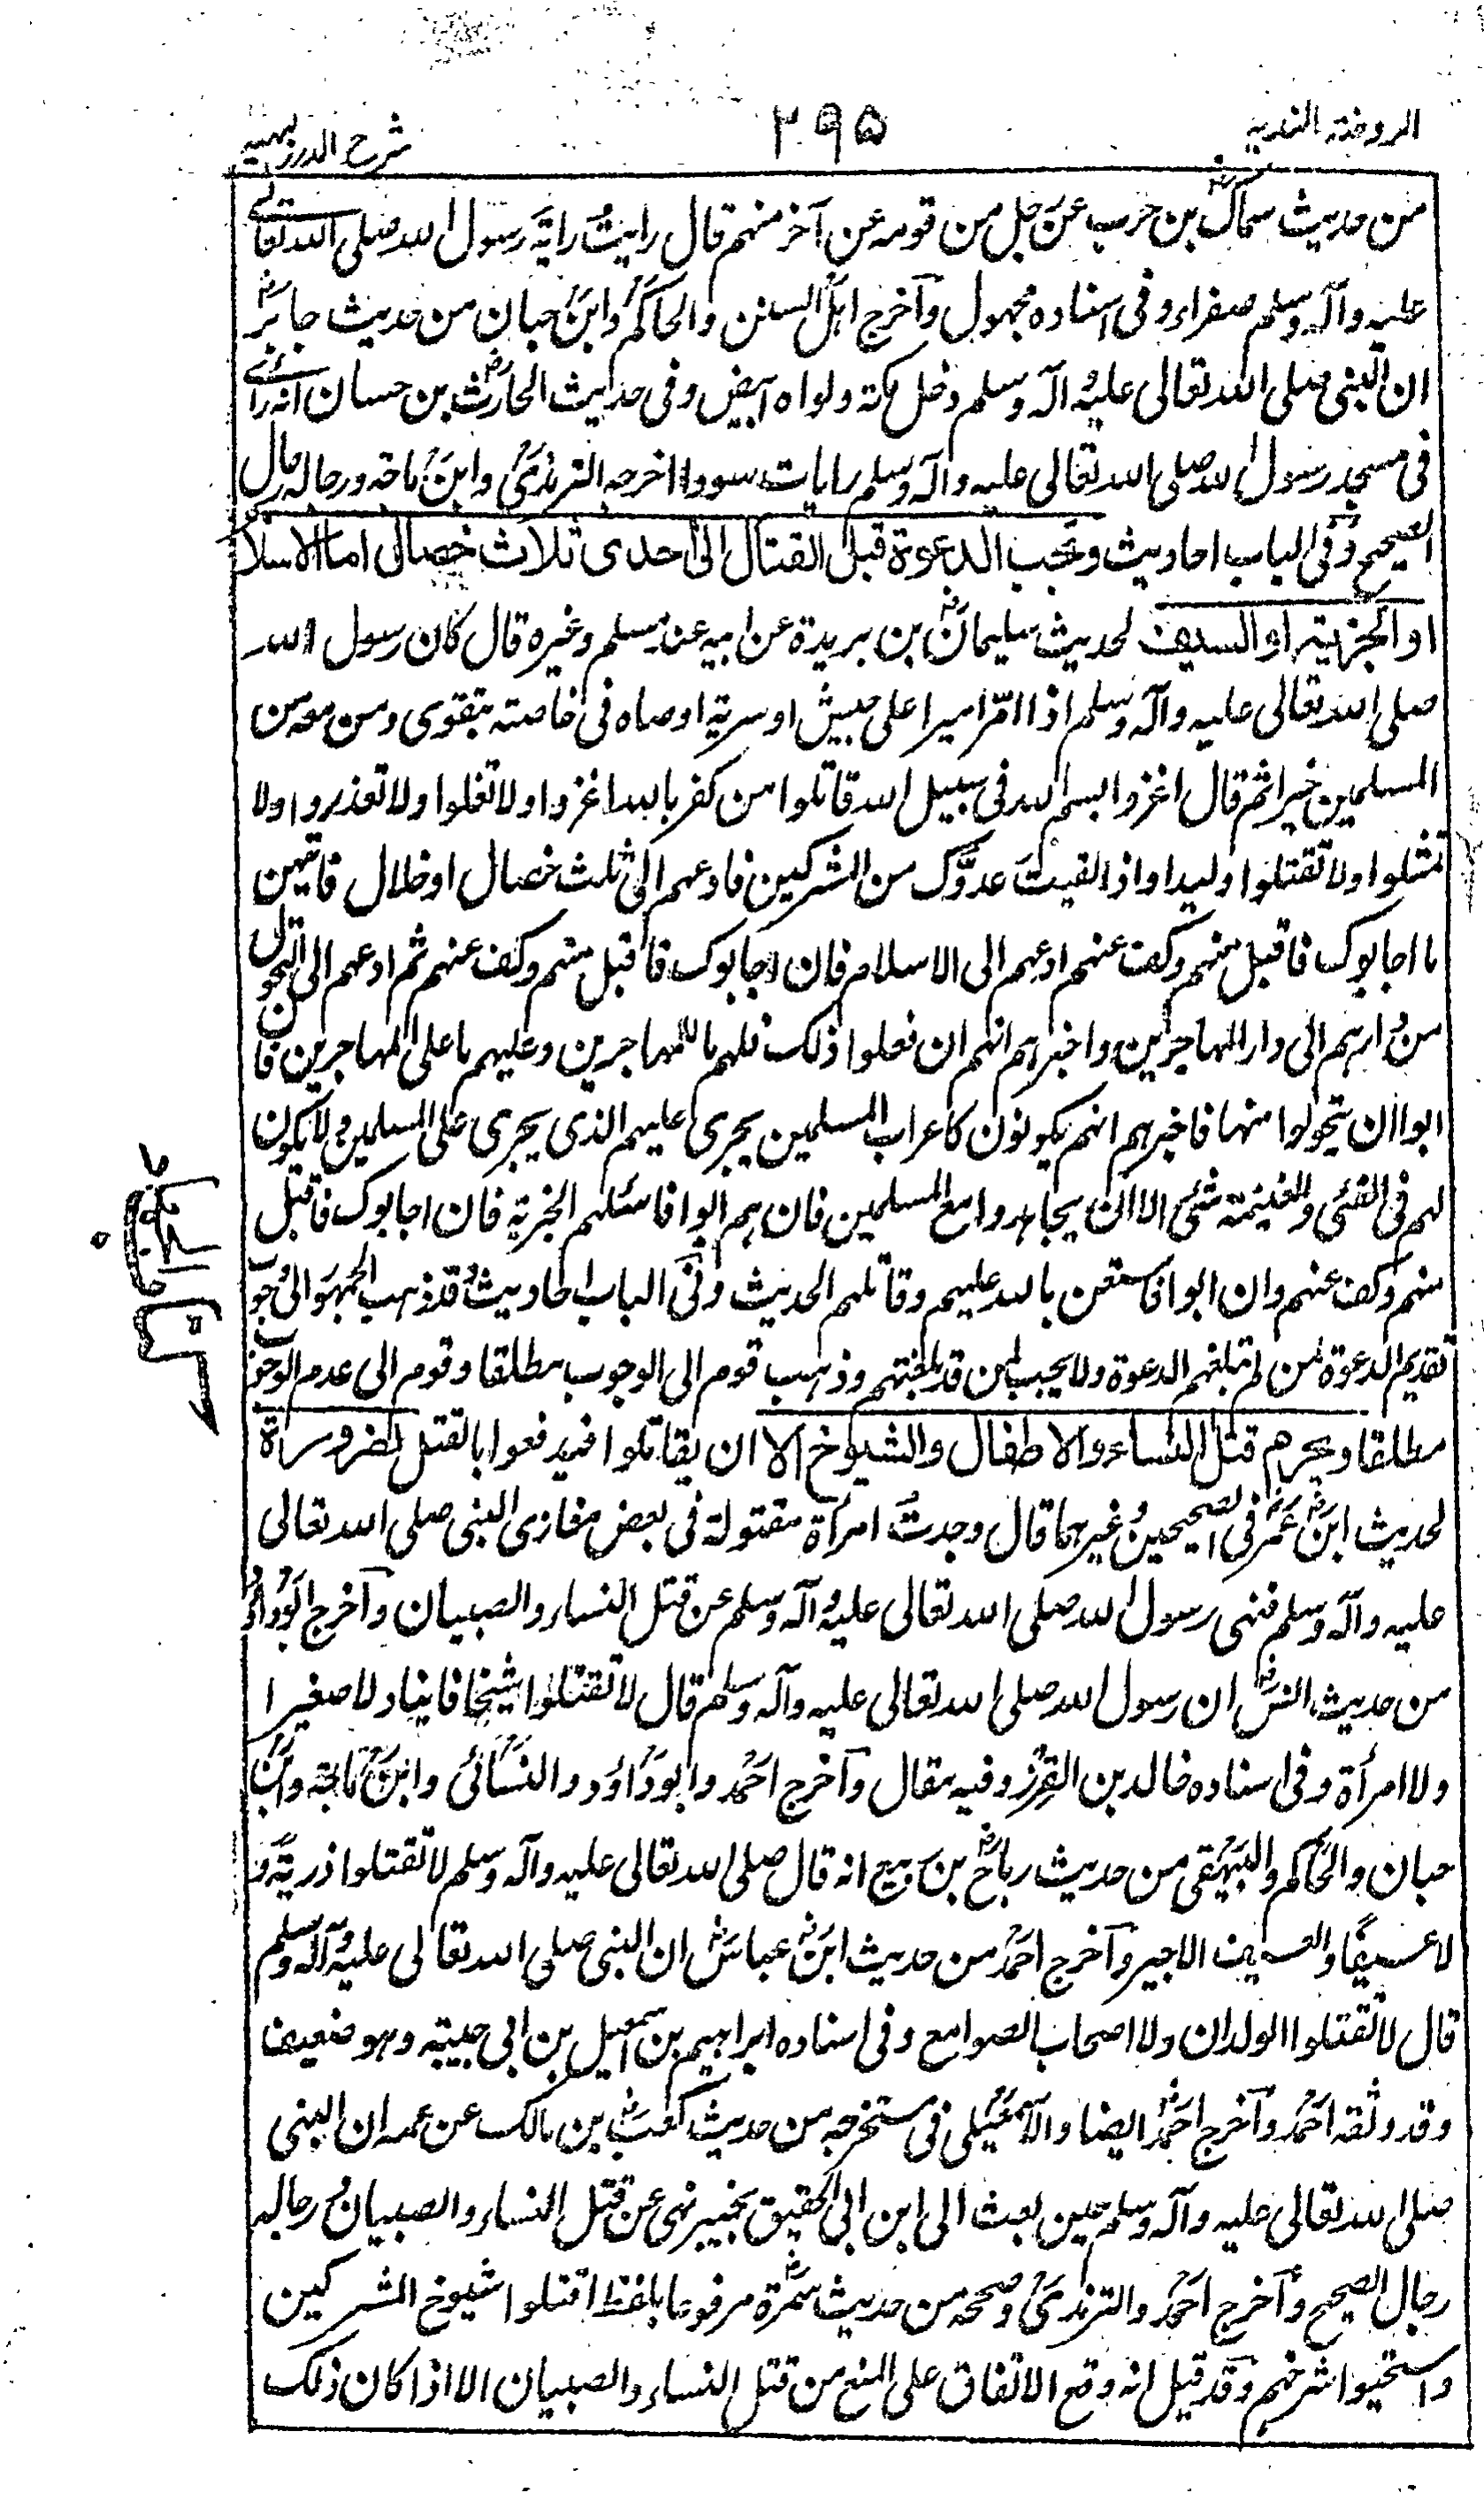 الروضة الندية
۲۹۵
شرح الدرر البهية
من حديث سماك بن حرب عن رجل من قومه عن آخر منهم قال رايت راية رسول الله صلى الله تعالى
عليه وآله وسلم صفراء وفى اسناده مجهول وآخرج اهل السنن والحاكم وابن حبان من حديث جابر
ان النبى صلى الله تعالى عليه وآله وسلم دخل مكة ولواه ابيض وفى حديث الحارث بن حسان انه رأى
فى مسجد رسول الله صلى الله تعالى عليه وآله وسلم رايات سودا اخرجه الترمذى وابن ماجة ورجاله رجال
الصحيح وفى الباب احاديث وتجب الدعوة قبل القتال الى احدى ثلاث خصال اما الاسلام
او الجزية او السيف لحديث سليمان بن بريدة عن ابيه عند مسلم وغيره قال كان رسول الله
صلى الله تعالى عليه وآله وسلم اذا امّر اميرا على جيش او سرية اوصاه فى خاصته بتقوى ومن معه من
المسلمين خيرا ثم قال اغزوا بسم الله فى سبيل الله قاتلوا من كفر بالله اغزوا ولا تغلوا ولا تغدروا ولا
تمثلوا ولا تقتلوا وليدا واذا لقيت عدوّك من المشركين فادعهم الى ثلث خصال او خلال فايتهن
ما اجابوك فاقبل منهم وكف عنهم ادعهم الى الاسلام فان اجابوك فاقبل منهم وكف عنهم ثم ادعهم الى التحول
من دارهم الى دار المهاجرين واخبرهم انهم ان فعلوا ذلك فلهم ما للمهاجرين وعليهم ما على المهاجرين فا
ابوا ان يتحولوا منها فاخبرهم انهم يكونون كاعراب المسلمين يجرى عليهم الذى يجرى على المسلمين ولا يكون
لهم فى الفئى والغنيمة شئى الا ان يجاهدوا مع المسلمين فان هم ابوا فاسئلهم الجزية فان اجابوك فاقبل
منهم وكف عنهم وان ابوا فاستعن بالله عليهم وقاتلهم الحديث وفى الباب احاديث وقد ذهب الجمهور الى وجوب
تقديم الدعوة لمن لم تبلغهم الدعوة ولا يجب لمن قد بلغتهم وذهب قوم الى الوجوب مطلقا وقوم الى عدم الوجوب
مطلقا ويحرم قتل النساء والاطفال والشيوخ الا ان يقاتلوا فيدفعوا بالقتل لضرورة
لحديث ابن عمر فى الصحيحين وغيرهما قال وجدت امرأة مقتولة فى بعض مغازى النبى صلى الله تعالى
عليه وآله وسلم فنهى رسول الله صلى الله تعالى عليه وآله وسلم عن قتل النساء والصبيان وآخرج ابو داؤد
من حديث انس ان رسول الله صلى الله تعالى عليه وآله وسلم قال لا تقتلوا شيخا فانيا ولا صغيرا
ولا امرأة وفى اسناده خالد بن الفرز وفيه مقال وآخرج احمد وابو داؤد والنسائى وابن ماجة وابن
حبان والحاكم والبيهقى من حديث رباح بن ربيع انه قال صلى الله تعالى عليه وآله وسلم لا تقتلوا ذرية و
لا عسيفًا والعسيف الاجير وآخرج احمد من حديث ابن عباس ان النبى صلى الله تعالى عليه وآله وسلم
قال لا تقتلوا الولدان ولا اصحاب الصوامع وفى اسناده ابراهيم بن اسمعيل بن ابى حبيبة وهو ضعيف
وقد وثقه احمد وآخرج احمد ايضا والاسمعيلى فى مستخرجه من حديث كعب بن مالك عن عمه ان النبى
صلى الله تعالى عليه وآله وسلم حين بعث الى ابن ابى الحقيق بخيبر نهى عن قتل النساء والصبيان ورجاله
رجال الصحيح وآخرج احمد والترمذى وصححه من حديث سمرة مرفوعا بلفظ اقتلوا شيوخ المشركين
واستحيوا شرخهم وقد قيل انه وقع الاتفاق على المنع من قتل النساء والصبيان الا اذا كان ذلك